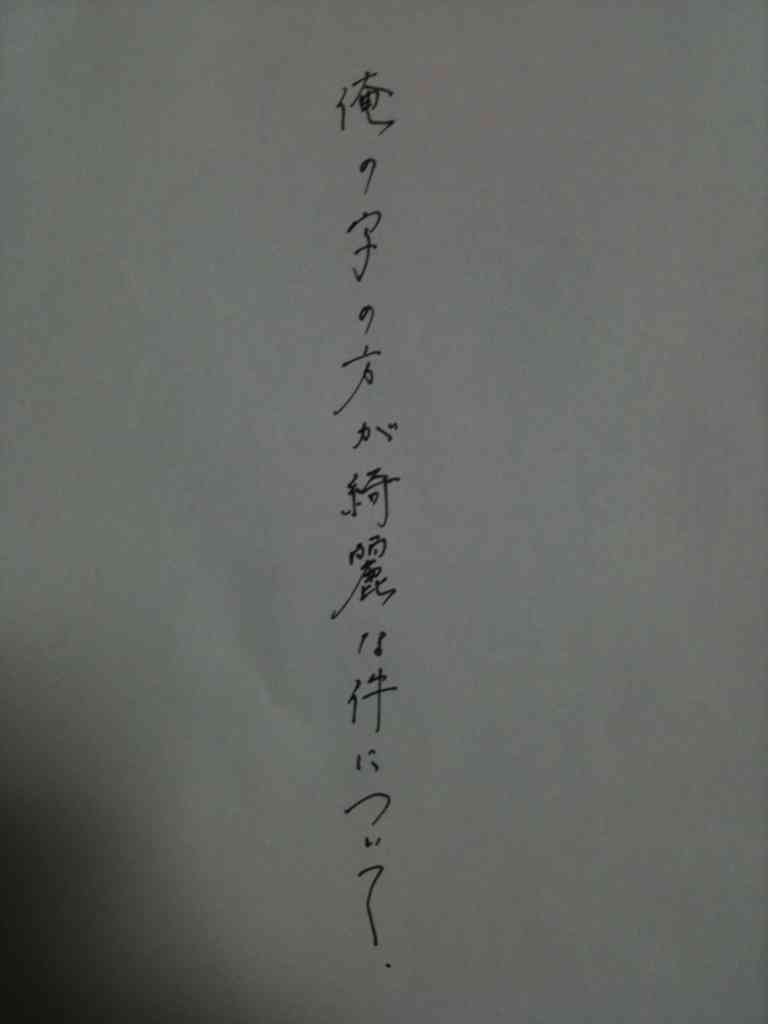 俺の字の方が綺麗な件について.